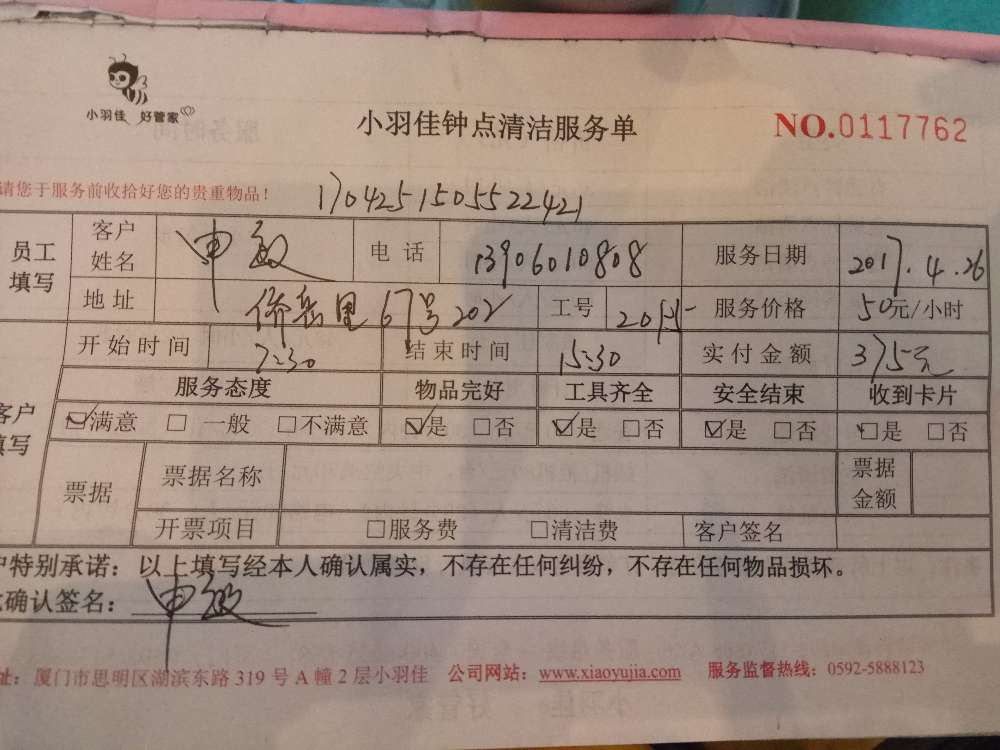 小羽佳 好管家
小羽佳钟点清洁服务单 NO.0117762
请您于服务前收拾好您的贵重物品！ 170425150552​2421
员工填写 客户姓名 申敏 电话 13906010808 服务日期 2017.4.26
地址 侨岳里67号202 工号 服务价格 50元/小时
开始时间 7:30 结束时间 15:30 实付金额 375元
客户填写 服务态度 物品完好 工具齐全 安全结束 收到卡片
☑满意 □一般 □不满意 ☑是 □否 ☑是 □否 ☑是 □否 ☑是 □否
票据 票据名称 票据金额
开票项目 □服务费 □清洁费 客户签名
户特别承诺：以上填写经本人确认属实，不存在任何纠纷，不存在任何物品损坏。
确认签名：申敏
址：厦门市思明区湖滨东路319号A幢2层小羽佳 公司网站：www.xiaoyujia.com 服务监督热线：0592-5888123